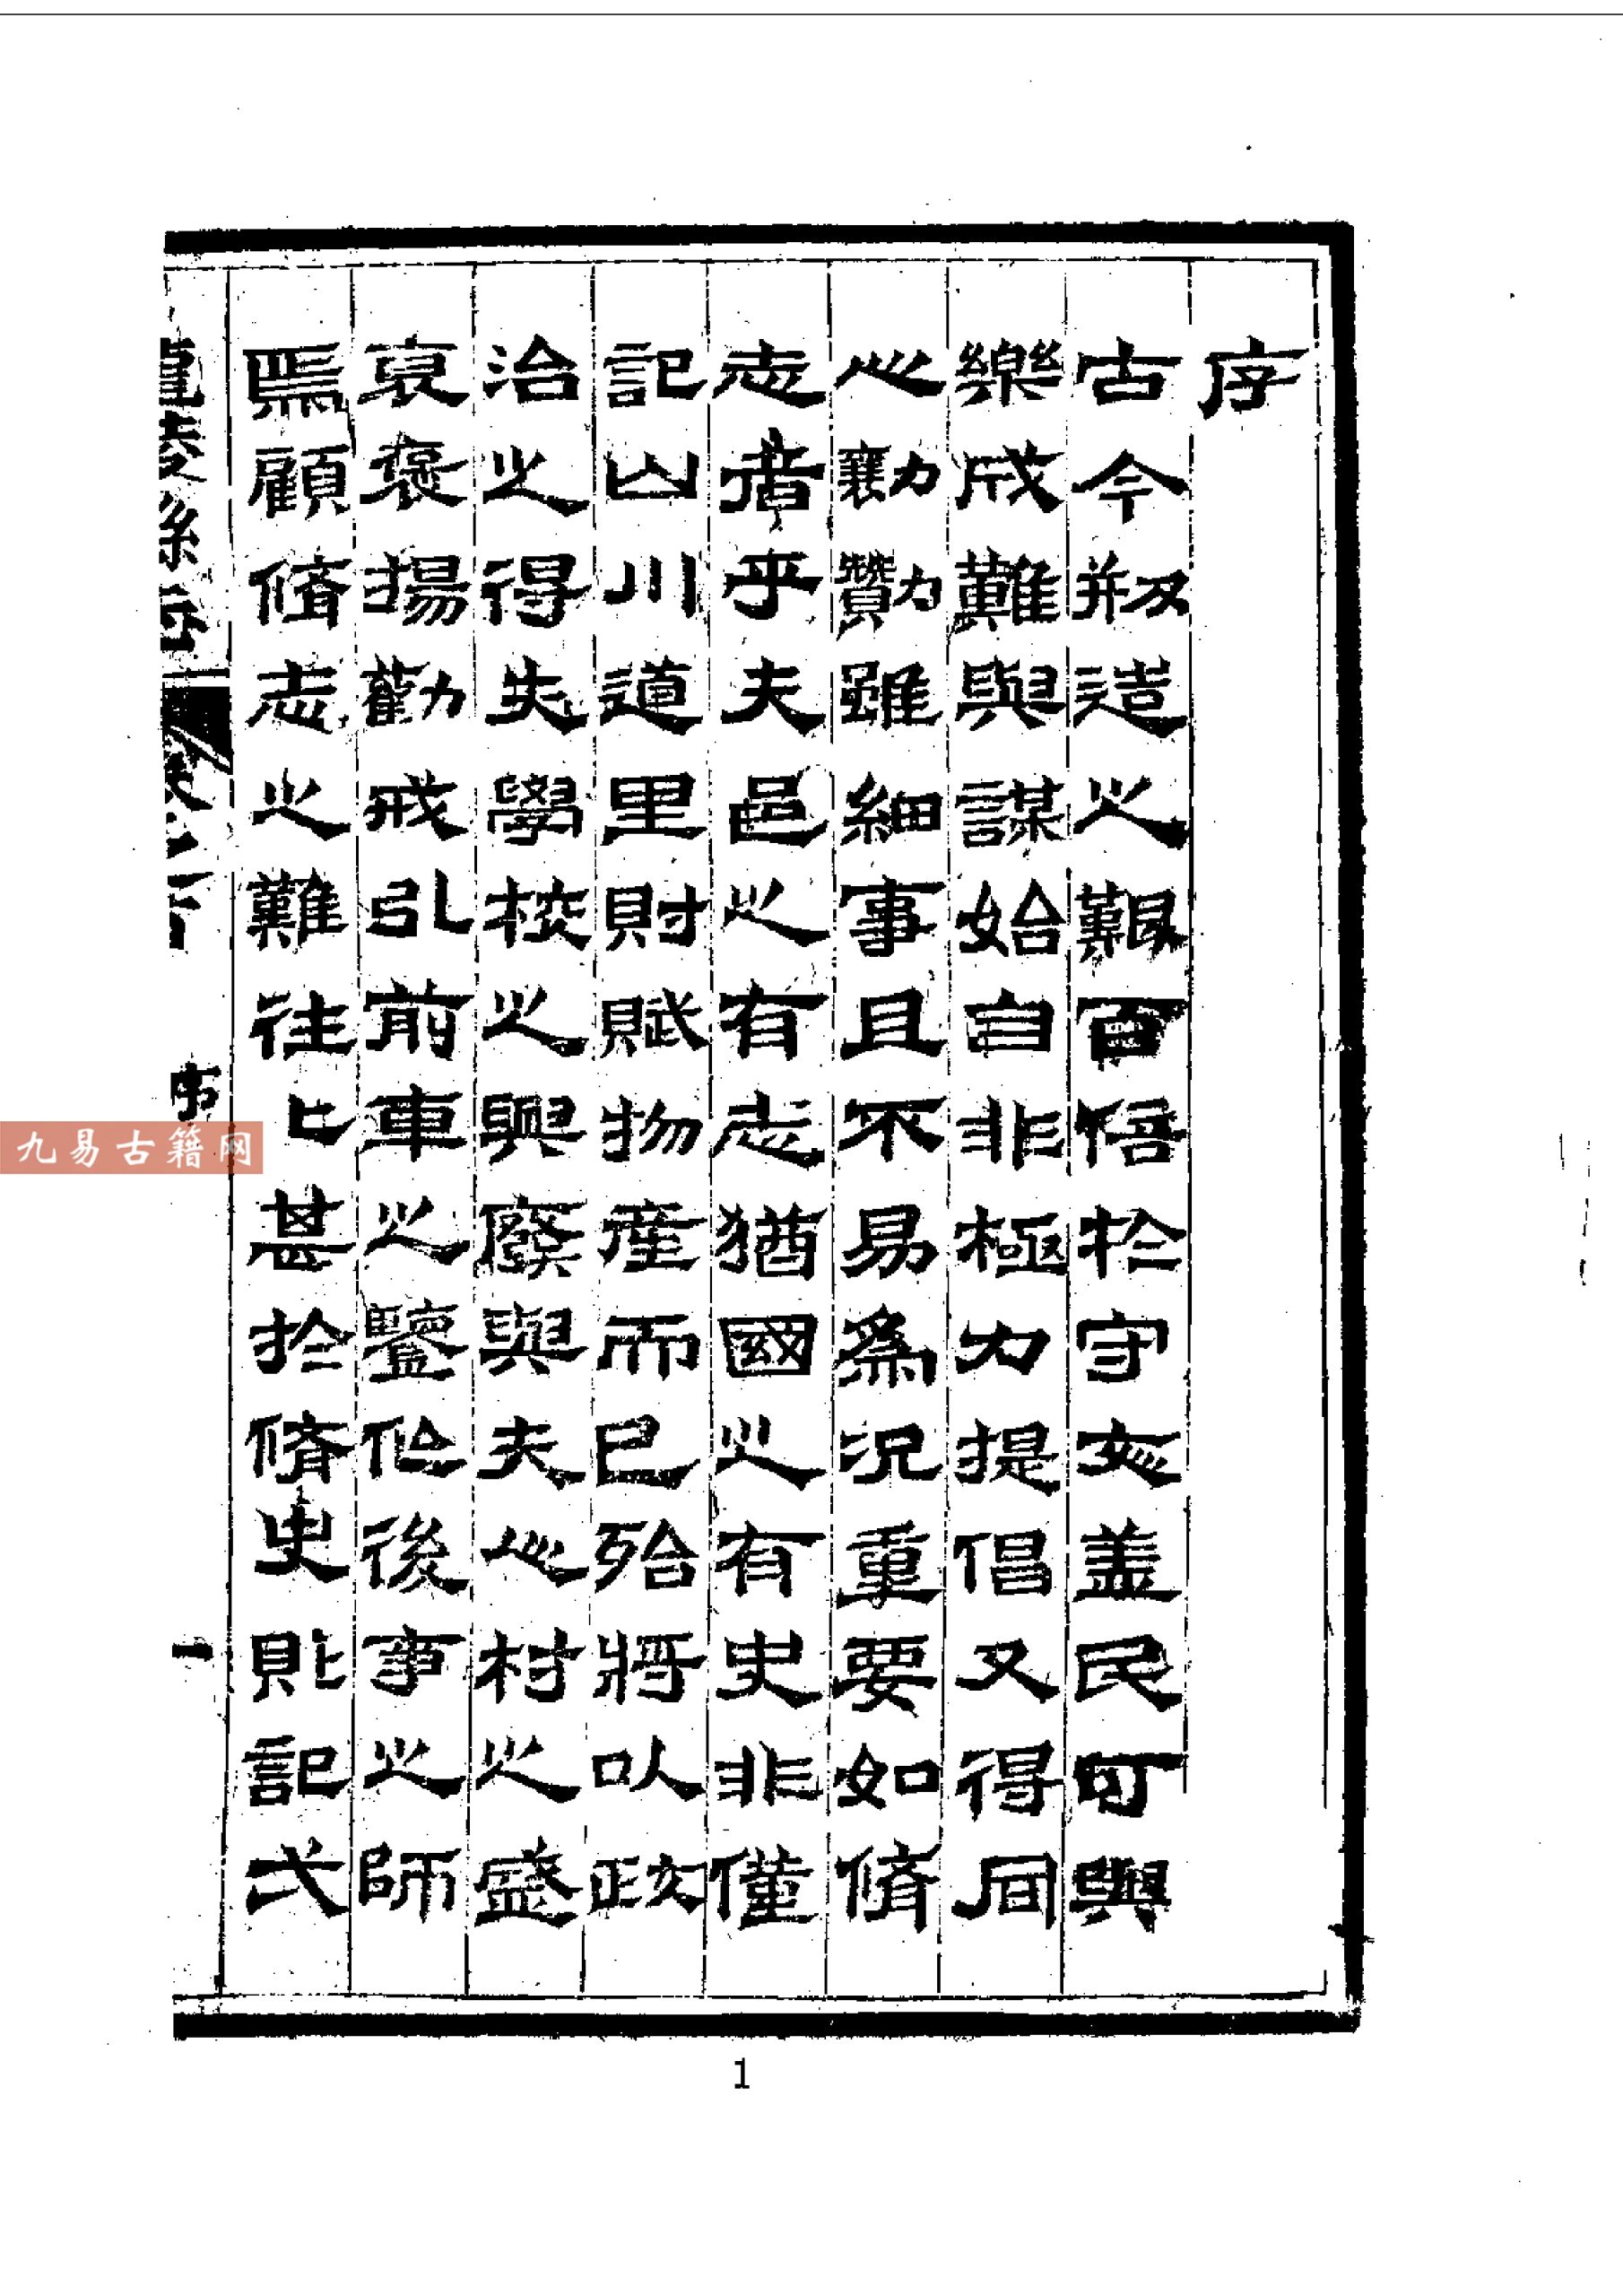 序
古今剏造之艱百倍扵守文盖民可與
樂成難與謀始自非極力提倡又得同
心襄勷贊雖細事且不易為况重要如脩
志者乎夫邑之有志猶國之有史非僅
記山川道里財賦物產而已殆將以政
治之得失學校之興廢與夫人材之盛
衰褒揚勸戒引前車之鑒作後事之師
焉顧脩志之難往匕甚扵脩史則記弍
龍陵縣志
卷之首
序
一
九易古籍网
1